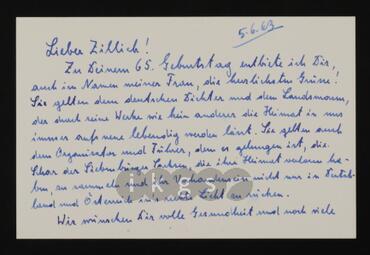 5.6.63
Lieber Zillich!
Zu Deinem 65. Geburtstag entbiete ich Dir,
auch im Namen meiner Frau, die herzlichsten Grüsse!
Sie gelten dem deutschen Dichter und dem Landsmann,
der durch seine Werke wie kein anderer die Heimat in uns
immer aufs neue lebendig werden lässt. Sie gelten auch
dem Organisator und Führer, dem es gelungen ist, die
Schar der Siebenbürger Sachsen, die ihre Heimat verloren ha-
ben, zu sammeln und ihr Vorhandensein nicht nur in Deutsch-
land und Österreich ins rechte Licht zu rücken.
Wir wünschen Dir volle Gesundheit und noch viele
ikgs